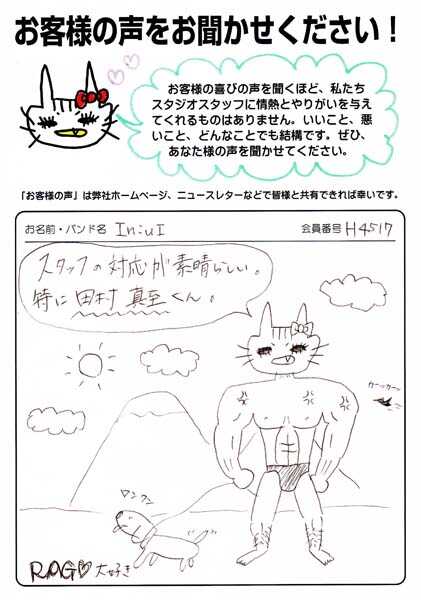 お客様の声をお聞かせください！
お客様の喜びの声を聞くほど、私たち
スタジオスタッフに情熱とやりがいを与え
てくれるものはありません。いいこと、悪
いこと、どんなことでも結構です。ぜひ、
あなた様の声を聞かせてください。
「お客様の声」は弊社ホームページ、ニュースレターなどで皆様と共有できれば幸いです。
お名前・バンド名 IniuI 会員番号 H4517
スタッフの対応が素晴らしい。
特に田村真至くん。
カーッカーッ
ワンワン
RAG♡大好き